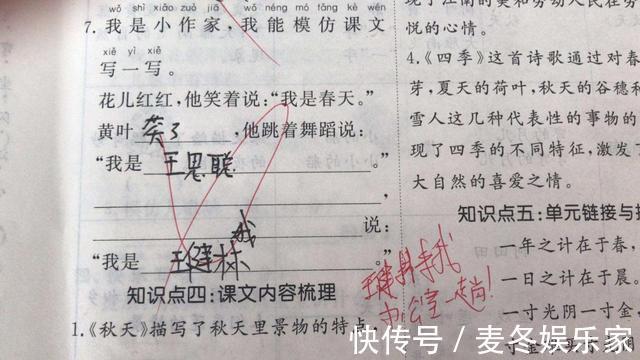 wǒ shì xiǎo zuò jiā wǒ néng mó fǎng kè wén
7.我是小作家,我能模仿课文
xiě yì xiě
写一写。
花儿红红,他笑着说:“我是春天。”
黄叶 黄了 ,他跳着舞蹈说:
“我是 王思聪 。”
我 说:
“我是 王健林 。”
知识点四:课文内容梳理
1.《秋天》描写了秋天里景物的特点,
王健林来我
办公室一趟!
悦的心情。
4.《四季》这首诗歌通过对春
芽,夏天的荷叶,秋天的谷穗和
雪人这几种代表性的事物的
现了四季的不同特征,激发了
大自然的喜爱之情。
知识点五:单元链接与
一年之计在于春,
一日之计在于晨。
一寸光阴一寸金,
快传号 / 麦冬娱乐家